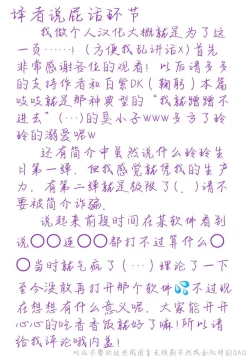 译者说屁话环节
我做个人汉化大概就是为了这
一页……！（方便我乱讲话X）首先
非常感谢各位的观看！以后请多多
的支持作者和白紫DK（鞠躬）本篇
吱吱就是那种典型的“我就蹭蹭不
进去”（…）的臭小子www多亏了玲
玲的溺爱呢w
还有简介中虽然说什么玲玲生
日第一弹，但我感觉就凭我的生产
力，有第二弹就是极限了（.）请不
要被简介诈骗.
说起来前段时间在某软件看到
说〇〇连〇〇都打不过算什么〇
〇当时就气疯了（…）理论了一下
至今没敢再打开那个软件💦不过现
在想想有什么意义呢，大家能开开
心心的吃香香饭就好了嘛!所以请
给我评论哦内盖!